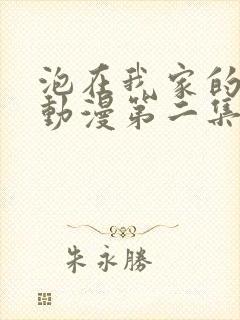 泡在我家的
動漫第二集
朱永勝